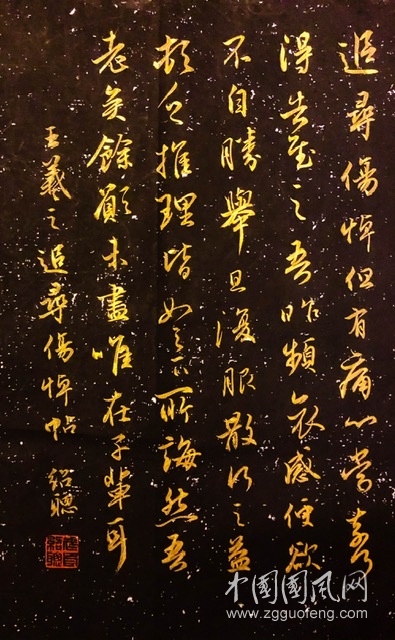 追尋傷悼但有痛心當奈何
得告慰之吾昨頻哀感便欲
不自勝舉旦復服散行之益
頓乏推理皆如足下所誨然吾
老矣餘願未盡唯在子輩耳
王羲之追尋傷悼帖 紹聰
中国国风网
www.zgguofeng.com